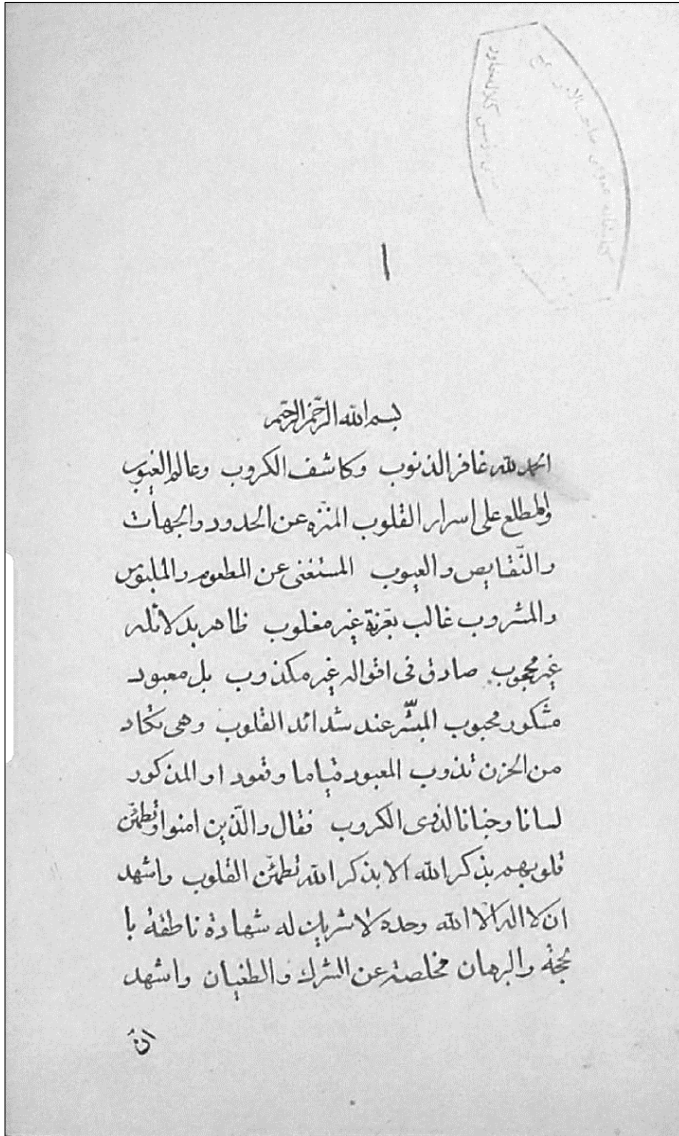 ١
بسم الله الرحمن الرحيم
الحمد لله غافر الذنوب وكاشف الكروب وعالم الغيوب
والمطلع على اسرار القلوب المنزّه عن الحدود والجهات
والنّقايص والعيوب المستغنى عن المطعوم والملبوس
والمشروب غالب بعزته غير مغلوب ظاهر بدلائله
غير محجوب صادق فى اقواله غير مكذوب بل معبود
مشكور محبوب المبشّر عند شدائد القلوب وهى تكاد
من الحزن تذوب المعبود قياما وقعودا والمذكور
لسانا وجنانا لذوى الكروب فقال والّذين امنوا وتطمئن
قلوبهم بذكر الله الا بذكر الله تطمئن القلوب واشهد
ان لا اله الا الله وحده لا شريك له شهادة ناطقة با
لحجة والبرهان مخلصة عن الشرك والطغيان واشهد
انّ